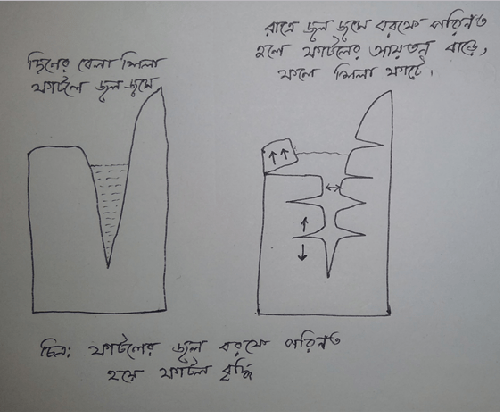 দিনের বেলা শিলা
ফাটলে জল জমে
রাত্রে জল জমে বরফে পরিনত
হলে ফাটলের আয়তন বাড়ে,
ফলে শিলা ফাটে।
চিত্র: ফাটলের জল বরফে পরিনত
হয়ে ফাটল বৃদ্ধি